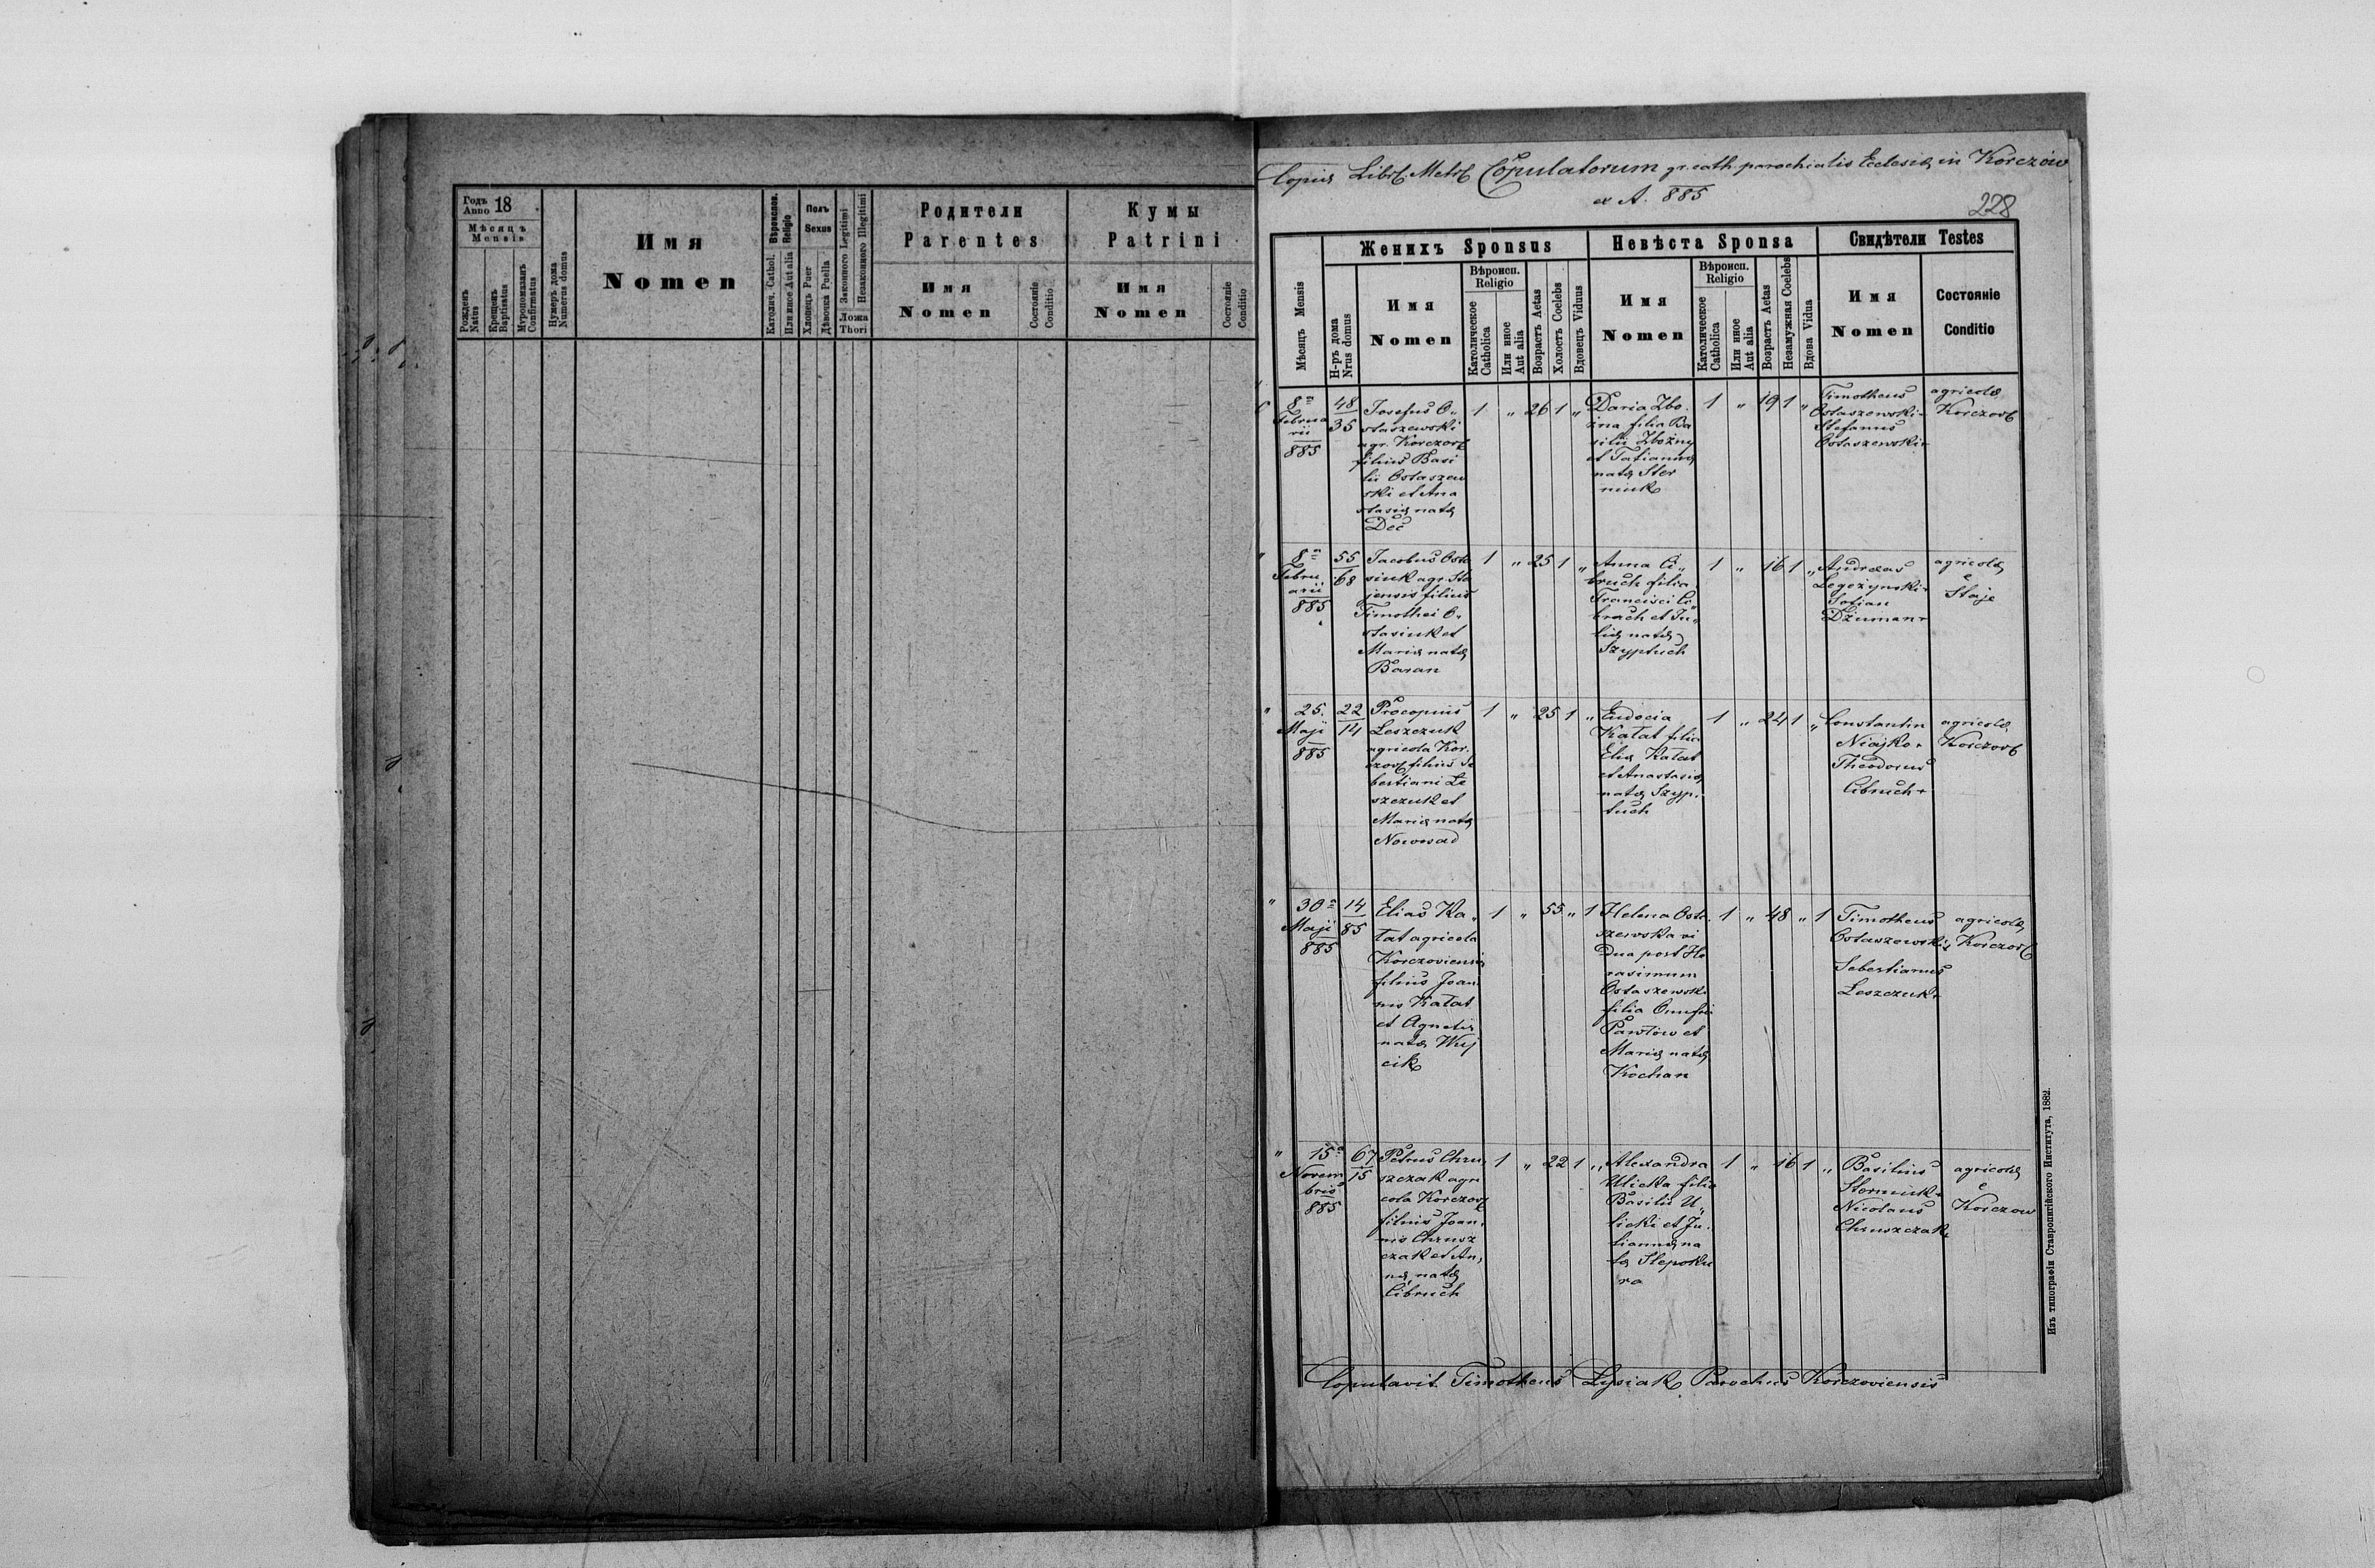 Годъ Anno 18
Мѣсяцъ Mensis
Рожденъ Natus
Крещенъ Baptisatus
Муропомазанъ Confirmatus
Нумеръ дома Numerus domus
Имя
Nomen
Вѣроиспов. Religio
Католич. Cathol.
Или иное Aut alia
Полъ Sexus
Хлопецъ Puer
Дѣвочка Puella
Законного Legitimi
Незаконного Illegitimi
Ложа Thori
Родители
Parentes
Имя
Nomen
Состояніе Conditio
Кумы
Patrini
Имя
Nomen
Состояніе Conditio
Copia Libr. Metr. Copulatorum gr. cath. parochialis Ecclesiæ in Korczów
ex A. 885
228
Мѣсяцъ Mensis
Женихъ Sponsus
Н-ръ дома Nrus domus
Имя
Nomen
Вѣроисп. Religio
Католическое Catholica
Или иное Aut alia
Возрастъ Aetas
Холостъ Coelebs
Вдовецъ Viduus
Невѣста Sponsa
Имя
Nomen
Вѣроисп. Religio
Католическое Catholica
Или иное Aut alia
Возрастъ Aetas
Незамужная Coelebs
Вдова Vidua
Свидѣтели Testes
Имя
Nomen
Состояніе
Conditio
8a
Februa
rii
885
48
35
Josefus O„
staszewski
agr. Korczov
filius Basi
lii Ostaszew
ski et Ana
stasiæ natæ
Dec
1 „ 26 1 „
Daria Zbo
żna filia Ba
silii Zbożny
et Tatiannæ
natæ Ster
niuk
1 „ 19 1 „
Timotheus
Ostaszewski
Stefanus
Ostaszewski
agricolæ
Korczov
8a
Febru
arii
885
55
68
Jacobus Osta
siuk agr. Sta
jensis filius
Timothei O„
stasiuk et
Mariæ natæ
Baran
1 „ 25 1 „
Anna Ci„
bruch filia
Francisci Ci
bruch et Ju„
liæ natæ
Szyptuch
1 „ 16 1 „
Andreas
Legeżynski
Sofian
Dżuman
agricolæ
e
Staje
25.
Maji
885
22
14
Procopius
Leszczuk
agricola Kor„
czov filius Se
bestiani Le
szczuk et
Mariæ natæ
Nowosad
1 „ 25 1 „
Eudocia
Kałat filia
Eliæ Kałat
et Anastasiæ
natæ Szyp„
tuch
1 „ 24 1 „
Constantin
Niajko
Theodorus
Cibruch
agricolæ
Korczov
30a
Maji
885
14
85
Elias Ka„
łat agricola
Korczoviensis
filius Joan
nis Kałat
et Agnetis
natæ Wuj
cik
1 „ 55 „ 1
Helena Osta
szewska vi
dua post He
rasimum
Ostaszewski
filia Onufrii
Pawłów et
Mariæ natæ
Kochan
1 „ 48 „ 1
Timotheus
Ostaszewski
Sebestianus
Leszczuk
agricolæ
Korczov
15a
Novem
bris
885
67
15
Petrus Chru
szczak agri
cola Korczov
filius Joan„
nis Chrusz
czak et An„
næ natæ
Cibruch
1 „ 22 1 „
Alexandra
Ulicka filia
Basilii U„
licki et Ju„
liannæ na
tæ Slepoku
ra
1 „ 16 1 „
Basilius
Sterniuk
Nicolaus
Chruszczak
agricolæ
e
Korczow
Copulavit Timotheus Lysiak Parochus Korczoviensis
Изъ типографіи Ставропигійского Института, 1882.